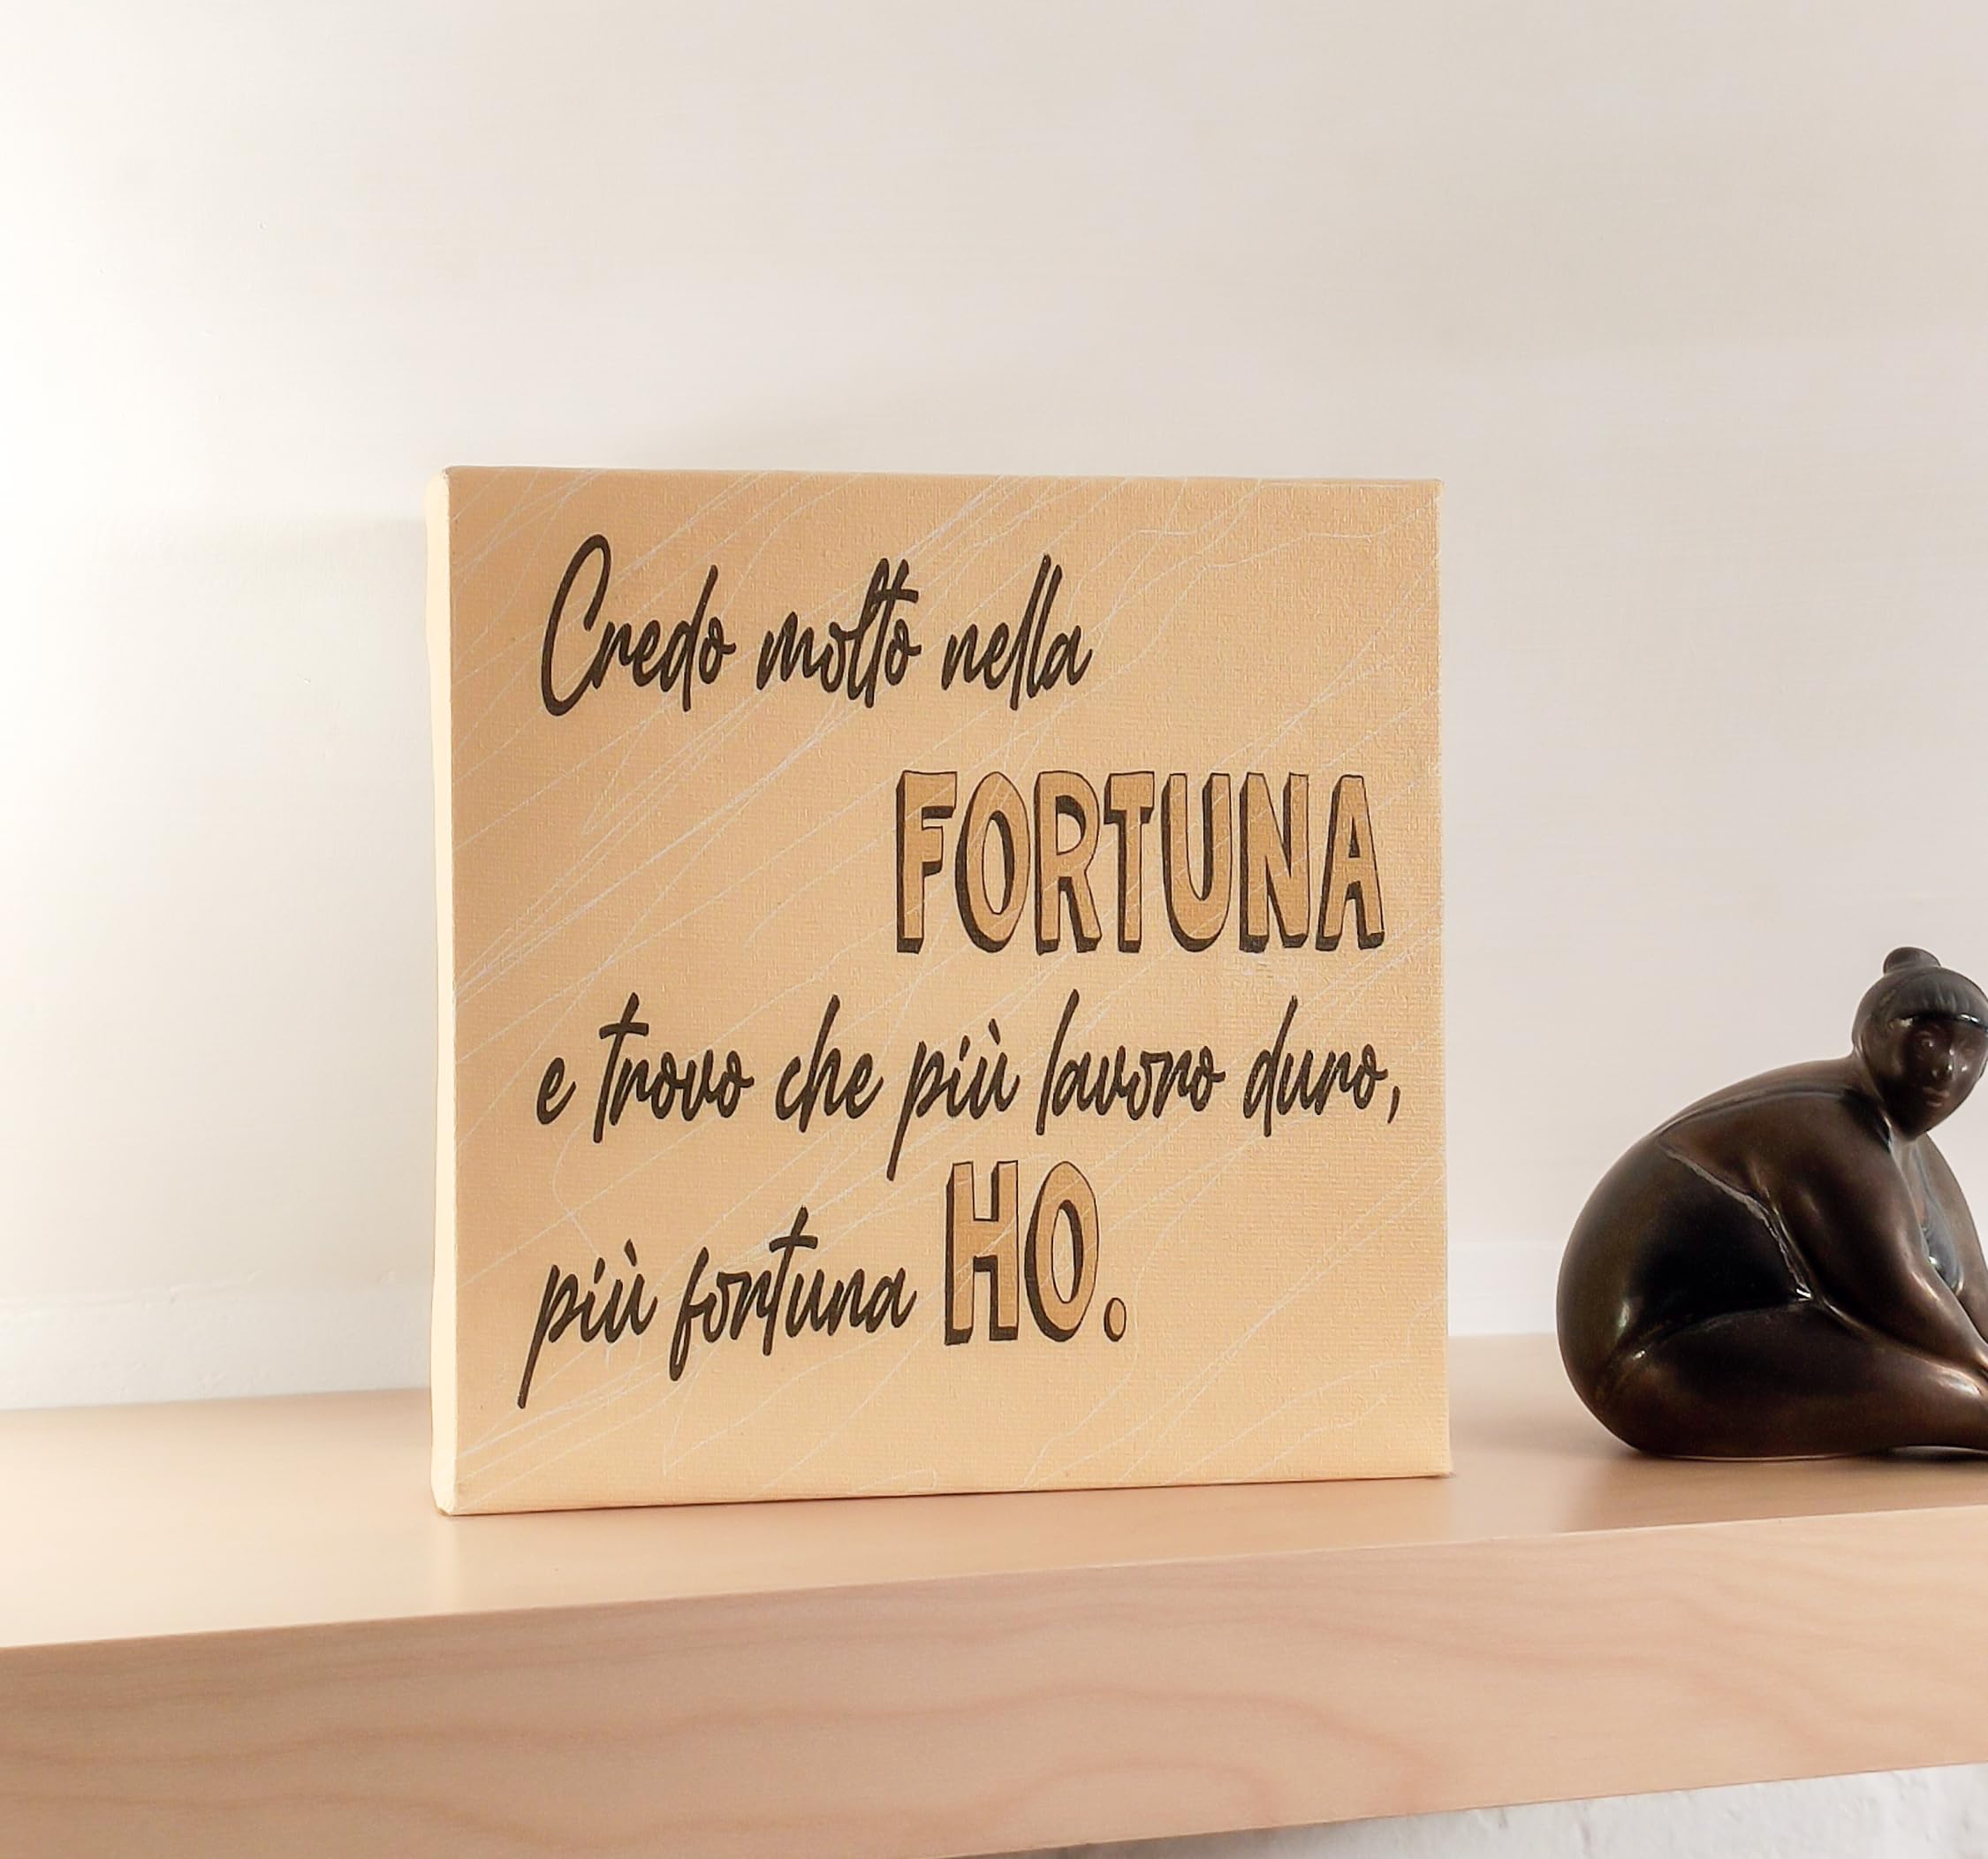 Credo molto nella
FORTUNA
e trovo che più lavoro duro,
più fortuna HO.